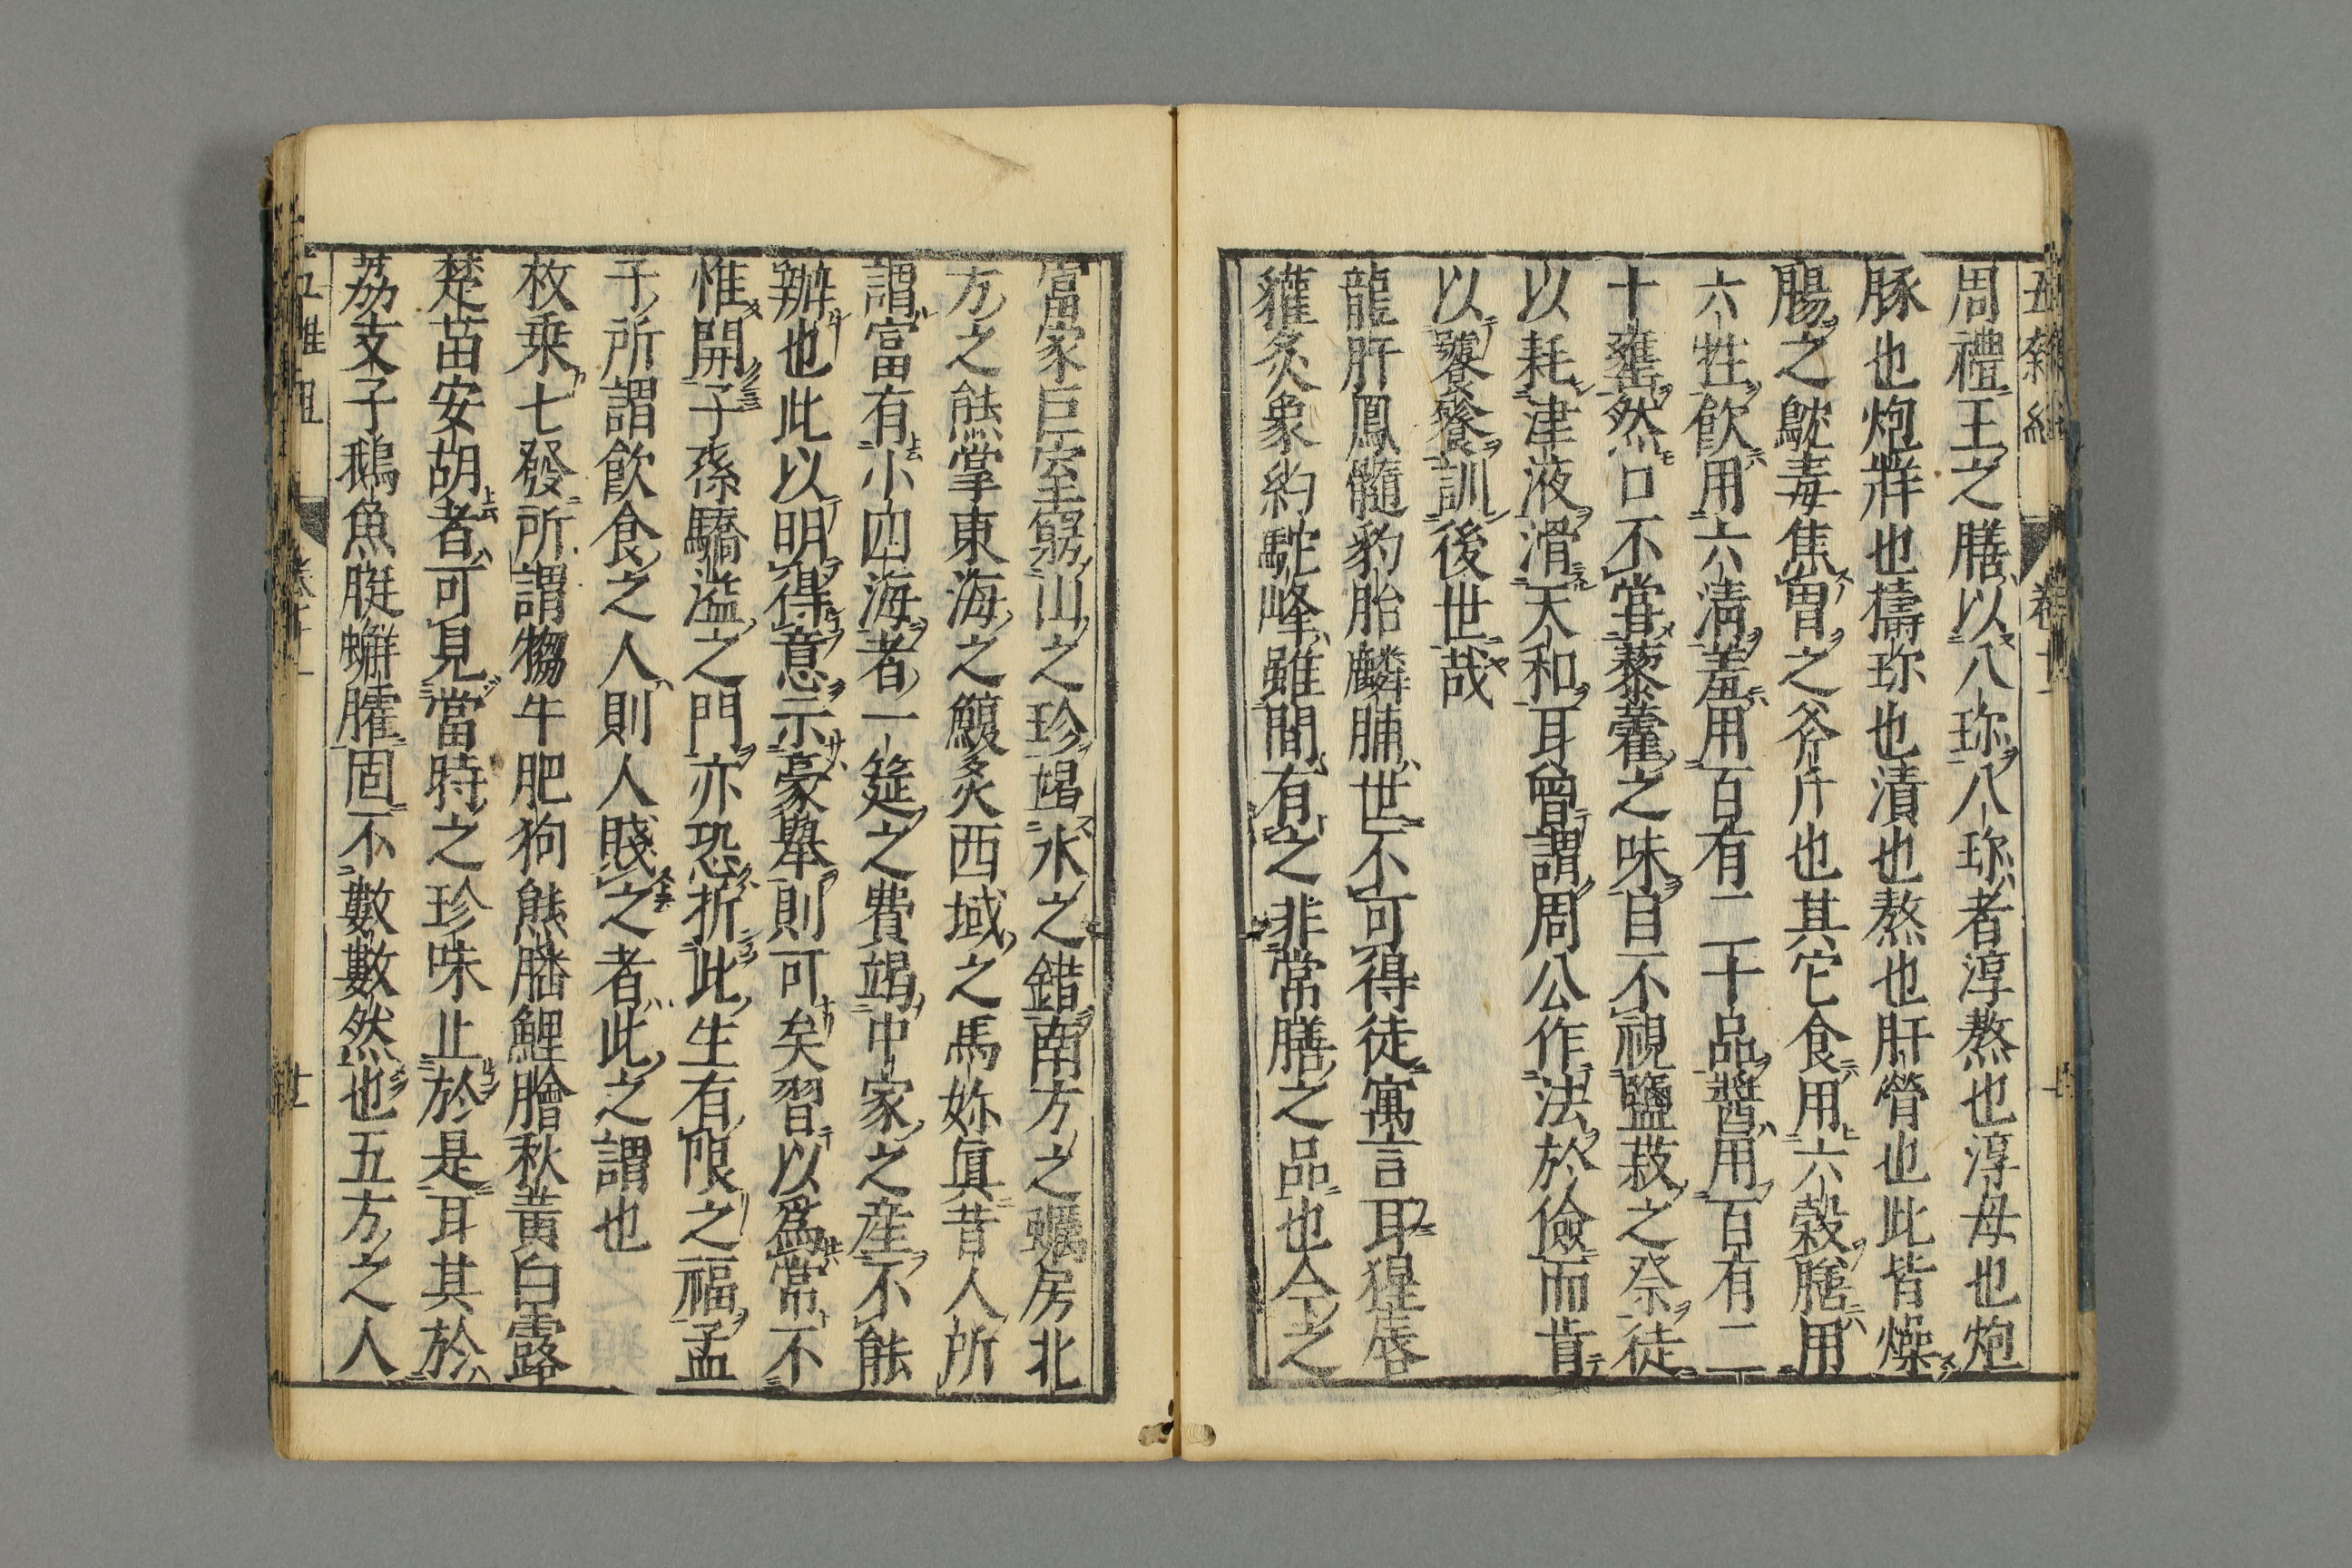 周禮王之膳以八珎八珎者淳熬也淳母也炮
豚也炮牂也擣珎也漬也熬也肝膋也此皆燥
腸之鴆毒焦胃之斧斤也其它食用六穀膳用
六牲飮用六淸羞用百有二十品醬用百有二
十罋然口不甞藜藿之味目不視鹽菽之祭徒
以耗津液滑天和耳曾謂周公作法於儉而肯
以饕餮訓後世哉
龍肝鳳髓豹胎麟脯世不可得徒寓言耳猩唇
獾炙象約駝峰雖間有之非常膳之品也今之
富家巨室窮山之珍竭水之錯南方之蠣房北
方之熊掌東海之鰒炙西域之馬妳眞昔人所
謂富有小四海者一筵之費竭中家之産不能
辦也此以明得意示豪舉則可矣習以爲常不
惟開子孫驕溢之門亦恐折此生有限之福孟
子所謂飮食之人則人賤之者此之謂也
枚乗七發所謂犓牛肥狗熊膰鯉膾秋黄白露
楚苗安胡者可見當時之珍味止於是耳其於
荔支子鵝魚脡蠏臛固不數數然也五方之人